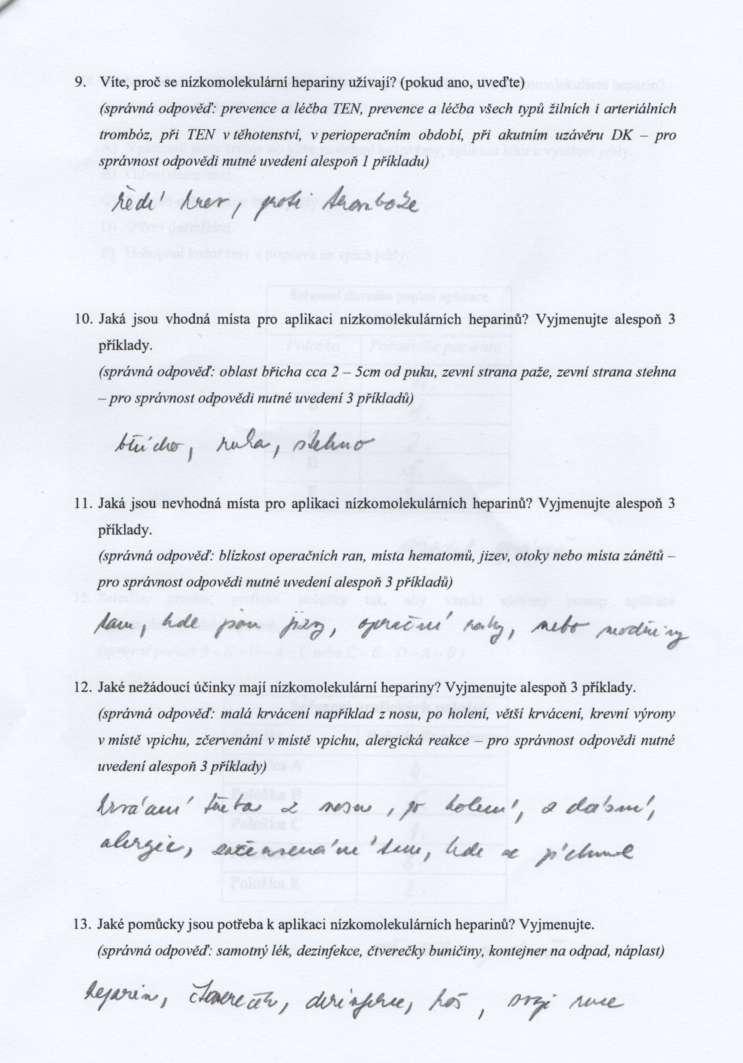 9. Víte, proč se nízkomolekulární hepariny užívají? (pokud ano, uveďte)
(správná odpověď: prevence a léčba TEN, prevence a léčba všech typů žilních i arteriálních
trombóz, při TEN v těhotenství, v perioperačním období, při akutním uzávěru DK – pro
správnost odpovědi nutné uvedení alespoň 1 příkladu)
ředí krev, proti trombóze
10. Jaká jsou vhodná místa pro aplikaci nízkomolekulárních heparinů? Vyjmenujte alespoň 3
příklady.
(správná odpověď: oblast břicha cca 2 – 5cm od puku, zevní strana paže, zevní strana stehna
– pro správnost odpovědi nutné uvedení 3 příkladů)
břicho, ruka, stehno
11. Jaká jsou nevhodná místa pro aplikaci nízkomolekulárních heparinů? Vyjmenujte alespoň 3
příklady.
(správná odpověď: blízkost operačních ran, místa hematomů, jizev, otoky nebo místa zánětů –
pro správnost odpovědi nutné uvedení alespoň 3 příkladů)
tam, kde jsou jizvy, operační rány, nebo modřiny
12. Jaké nežádoucí účinky mají nízkomolekulární hepariny? Vyjmenujte alespoň 3 příklady.
(správná odpověď: malá krvácení například z nosu, po holení, větší krvácení, krevní výrony
v místě vpichu, zčervenání v místě vpichu, alergická reakce – pro správnost odpovědi nutné
uvedení alespoň 3 příklady)
krvácení třeba z nosu, po holení, z dásní,
alergie, začervenání tam, kde se píchne
13. Jaké pomůcky jsou potřeba k aplikaci nízkomolekulárních heparinů? Vyjmenujte.
(správná odpověď: samotný lék, dezinfekce, čtverečky buničiny, kontejner na odpad, náplast)
heparin, čtvereček, dezinfekce, koš, ruce